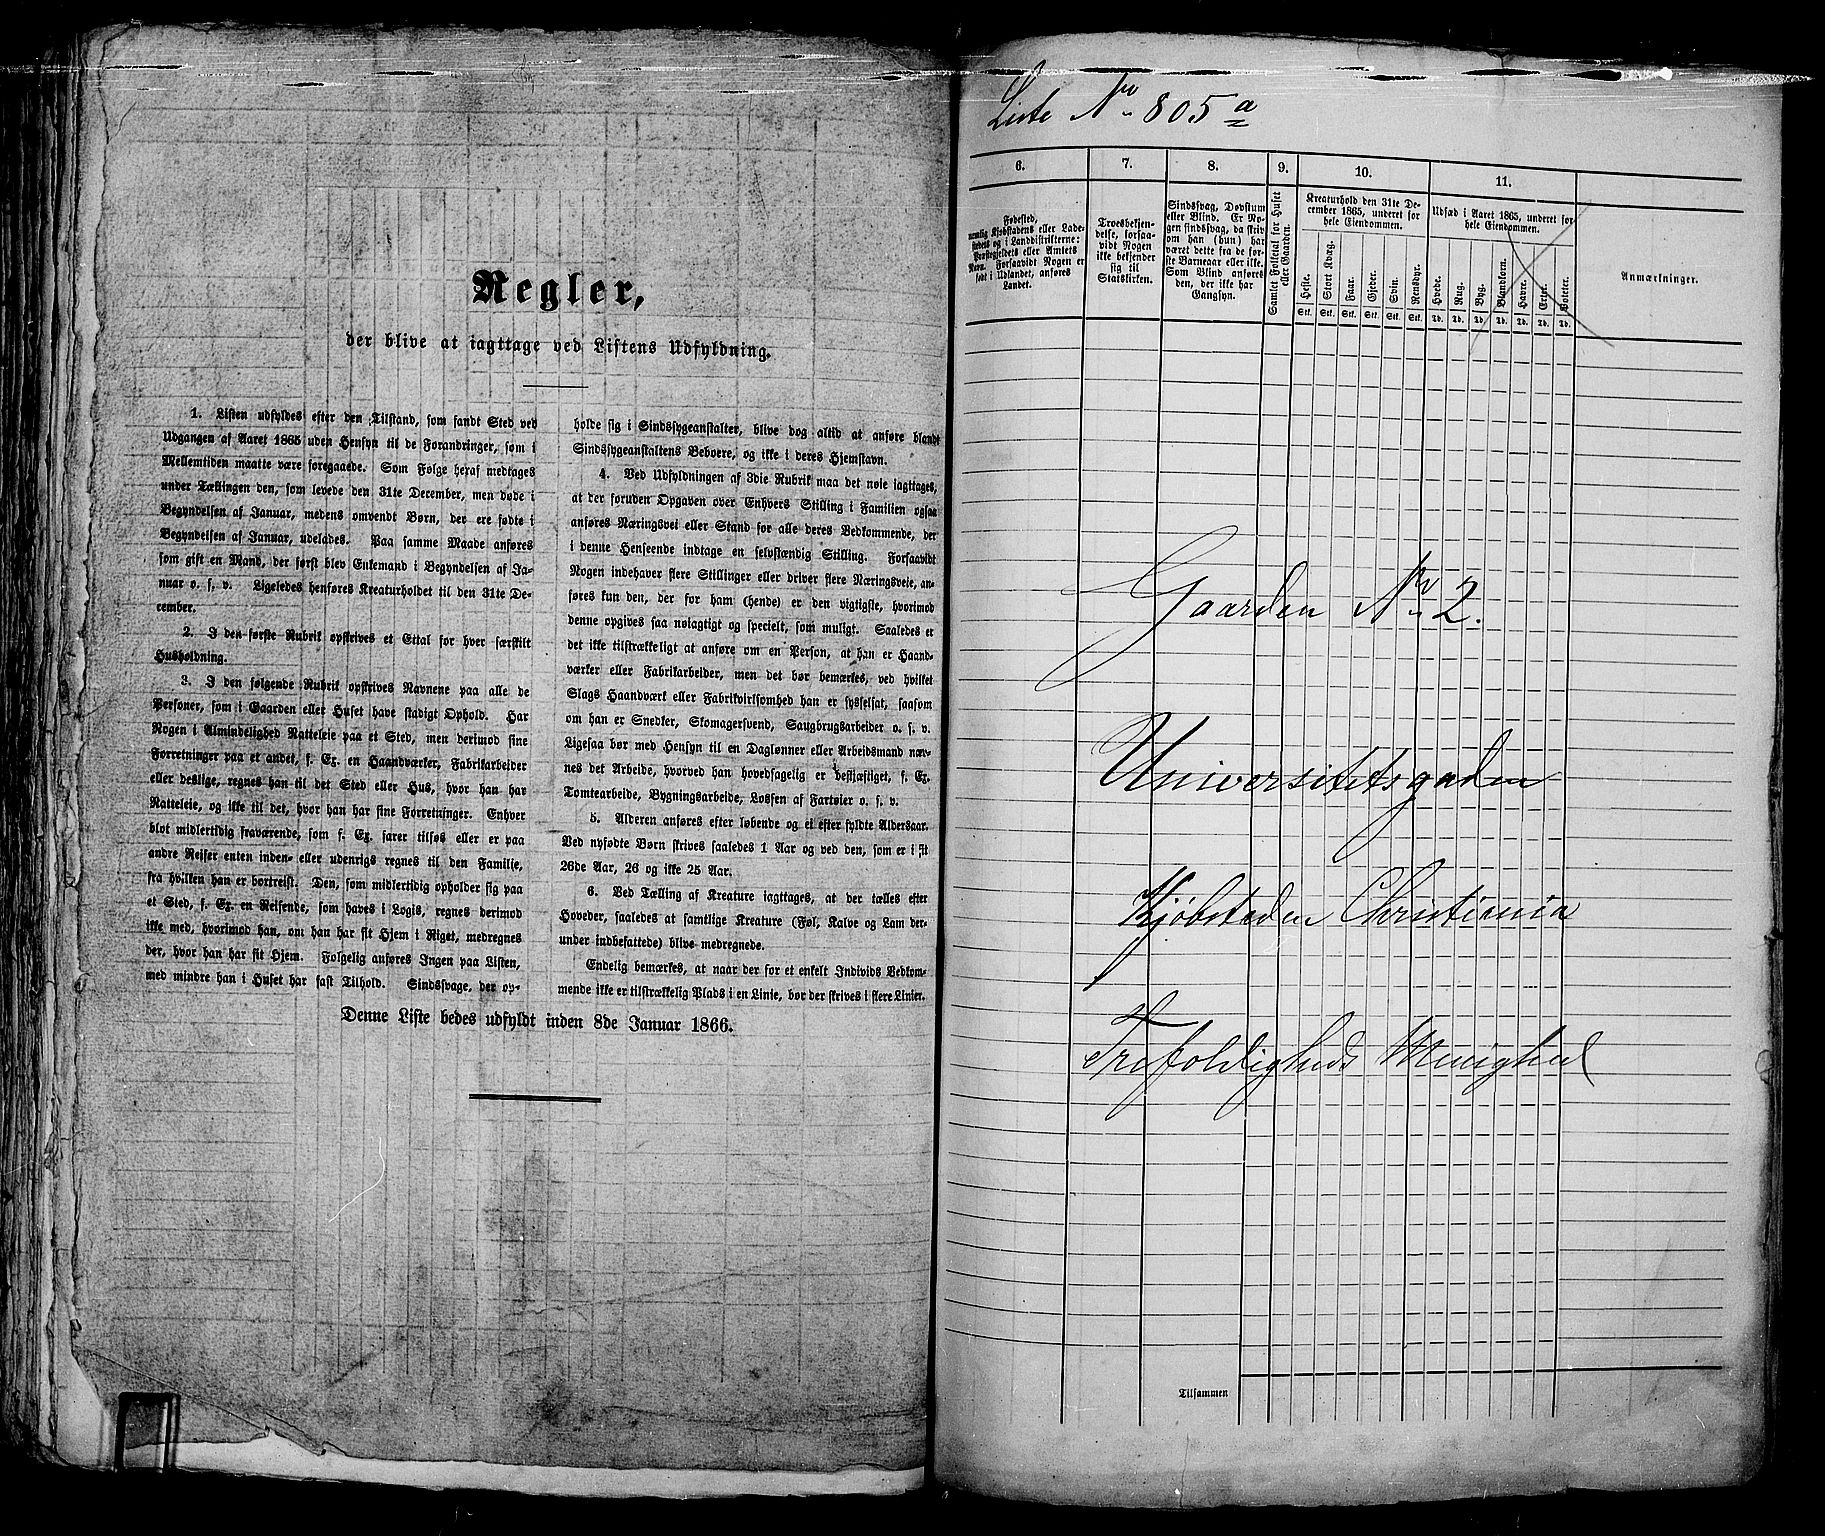 Regler,
der blive at iagttage ved Listens Udfyldning.
1. Listen udfyldes efter den Tilstand, som fandt Sted ved
Udgangen af Aaret 1865 uden Hensyn til de Forandringer, som i
Mellemtiden maatte være foregaaede. Som Følge heraf medtages
under Tællingen den, som levede den 31te December, men døde i
Begyndelsen af Januar, medens omvendt Børn, der ere fødte i
Begyndelsen af Januar, udelades. Paa samme Maade anføres
som gift en Mand, der først blev Enkemand i Begyndelsen af Ja-
nuar o. s. v. Ligeledes henføres Kreaturholdet til den 31te De-
cember.
2. I den første Rubrik opskrives et Ettal for hver særskilt
Husholdning.
3. I den følgende Rubrik opskrives Navnene paa alle de
Personer, som i Gaarden eller Huset have stadigt Ophold. Har
Nogen i Almindelighed Natteleie paa et Sted, men derimod sine
Forretninger paa et andet, f. Ex. en Haandværker, Fabrikarbeider
eller deslige, regnes han til det Sted eller Hus, hvor han har
Natteleie, og ikke til det, hvor han har sine Forretninger. Enhver
blot midlertidig fraværende, som f. Ex. farer tilsøs eller er paa
andre Reiser enten inden- eller udenrigs regnes til den Familie,
fra hvilken han er bortreist. Den, som midlertidig opholder sig paa
et Sted, f. Ex. en Reisende, som haves i Logis, regnes derimod
ikke med, hvorimod han, om han har sit Hjem i Riget, medregnes
der, hvor han har sit Hjem. Følgelig anføres Ingen paa Listen,
med mindre han i Huset har fast Tilhold. Sindssvage, der op-
holde sig i Sindssygeanstalter, blive dog altid at anføre blandt
Sindssygeanstaltens Beboere, og ikke i deres Hjemstavn.
4. Ved Udfyldningen af 3die Rubrik maa det nøie iagttages,
at der foruden Opgaven over Enhvers Stilling i Familien ogsaa
anføres Næringsvei eller Stand for alle deres Vedkommende, der
i denne Henseende indtage en selvstændig Stilling. Forsaavidt
Nogen indehaver flere Stillinger eller driver flere Næringsveie, an-
føres kun den, der for ham (hende) er den vigtigste, hvorimod
denne opgives saa nøiagtigt og specielt, som muligt. Saaledes er
det ikke tilstrækkeligt at anføre om en Person, at han er Haand-
værker eller Fabrikarbeider, men det bør bemærkes, ved hvilket
Slags Haandværk eller Fabrikvirksomhed han er sysselsat, saasom
om han er Snedker, Skomagersvend, Saugbrugsarbeider o. s. v.
Ligesaa bør med Hensyn til en Daglønner eller Arbeidsmand næv-
nes det Arbeide, hvorved han hovedsagelig er beskjæftiget, f. Ex.
Tomtearbeide, Bygningsarbeide, Lossen af Fartøier o. s. v.
5. Alderen anføres efter løbende og ei efter fyldte Aldersaar.
Ved nyfødte Børn skrives saaledes 1 Aar og ved den, som er i sit
26de Aar, 26 og ikke 25 Aar.
6. Ved Tælling af Kreature iagttages, at der tælles efter
Hoveder, saaledes at samtlige Kreature (Føl, Kalve og Lam der-
under indbefattede) blive medregnede.
Endelig bemærkes, at naar der for et enkelt Individs Vedkom-
mende ikke er tilstrækkelig Plads i en Linie, bør der skrives i flere Linier.
Denne Liste bedes udfyldt inden 8de Januar 1866.
Liste No 805 a
6. 7. 8. 9. 10. 11.
Fødested,
nemlig Kjøbstadens eller Lade-
stedets og i Landdistrikterne:
Præstegjeldets eller Amtets
Navn. Forsaavidt Nogen er
født i Udlandet, anføres
Landet.
Troesbekjen-
delse, forsaa-
vidt Nogen
ikke bekjender
sig til
Statskirken.
Sindssvag, Døvstum
eller Blind. Er No-
gen sindssvag, da skriv
om han (hun) har
været dette fra de før-
ste Barneaar eller ikke.
Som Blind anføres
den, der ikke har
Gangsyn.
Samlet Folketal for Huset
eller Gaarden.
Kreaturhold den 31te De-
cember 1865, underet for
hele Eiendommen.
Heste. Stort Kvæg. Faar. Gjeder. Svin. Rensdyr.
Stk. Stk. Stk. Stk. Stk. Stk.
Udsæd i Aaret 1865, underet for
hele Eiendommen.
Hvede. Rug. Byg. Blandkorn. Havre. Erter. Poteter.
Td. Td. Td. Td. Td. Td. Td.
Anmærkninger.
Gaarden No 2.
Universitetsgaden
Kjøbstaden Christiania
Trefoldigheds Menighed
Tilsammen